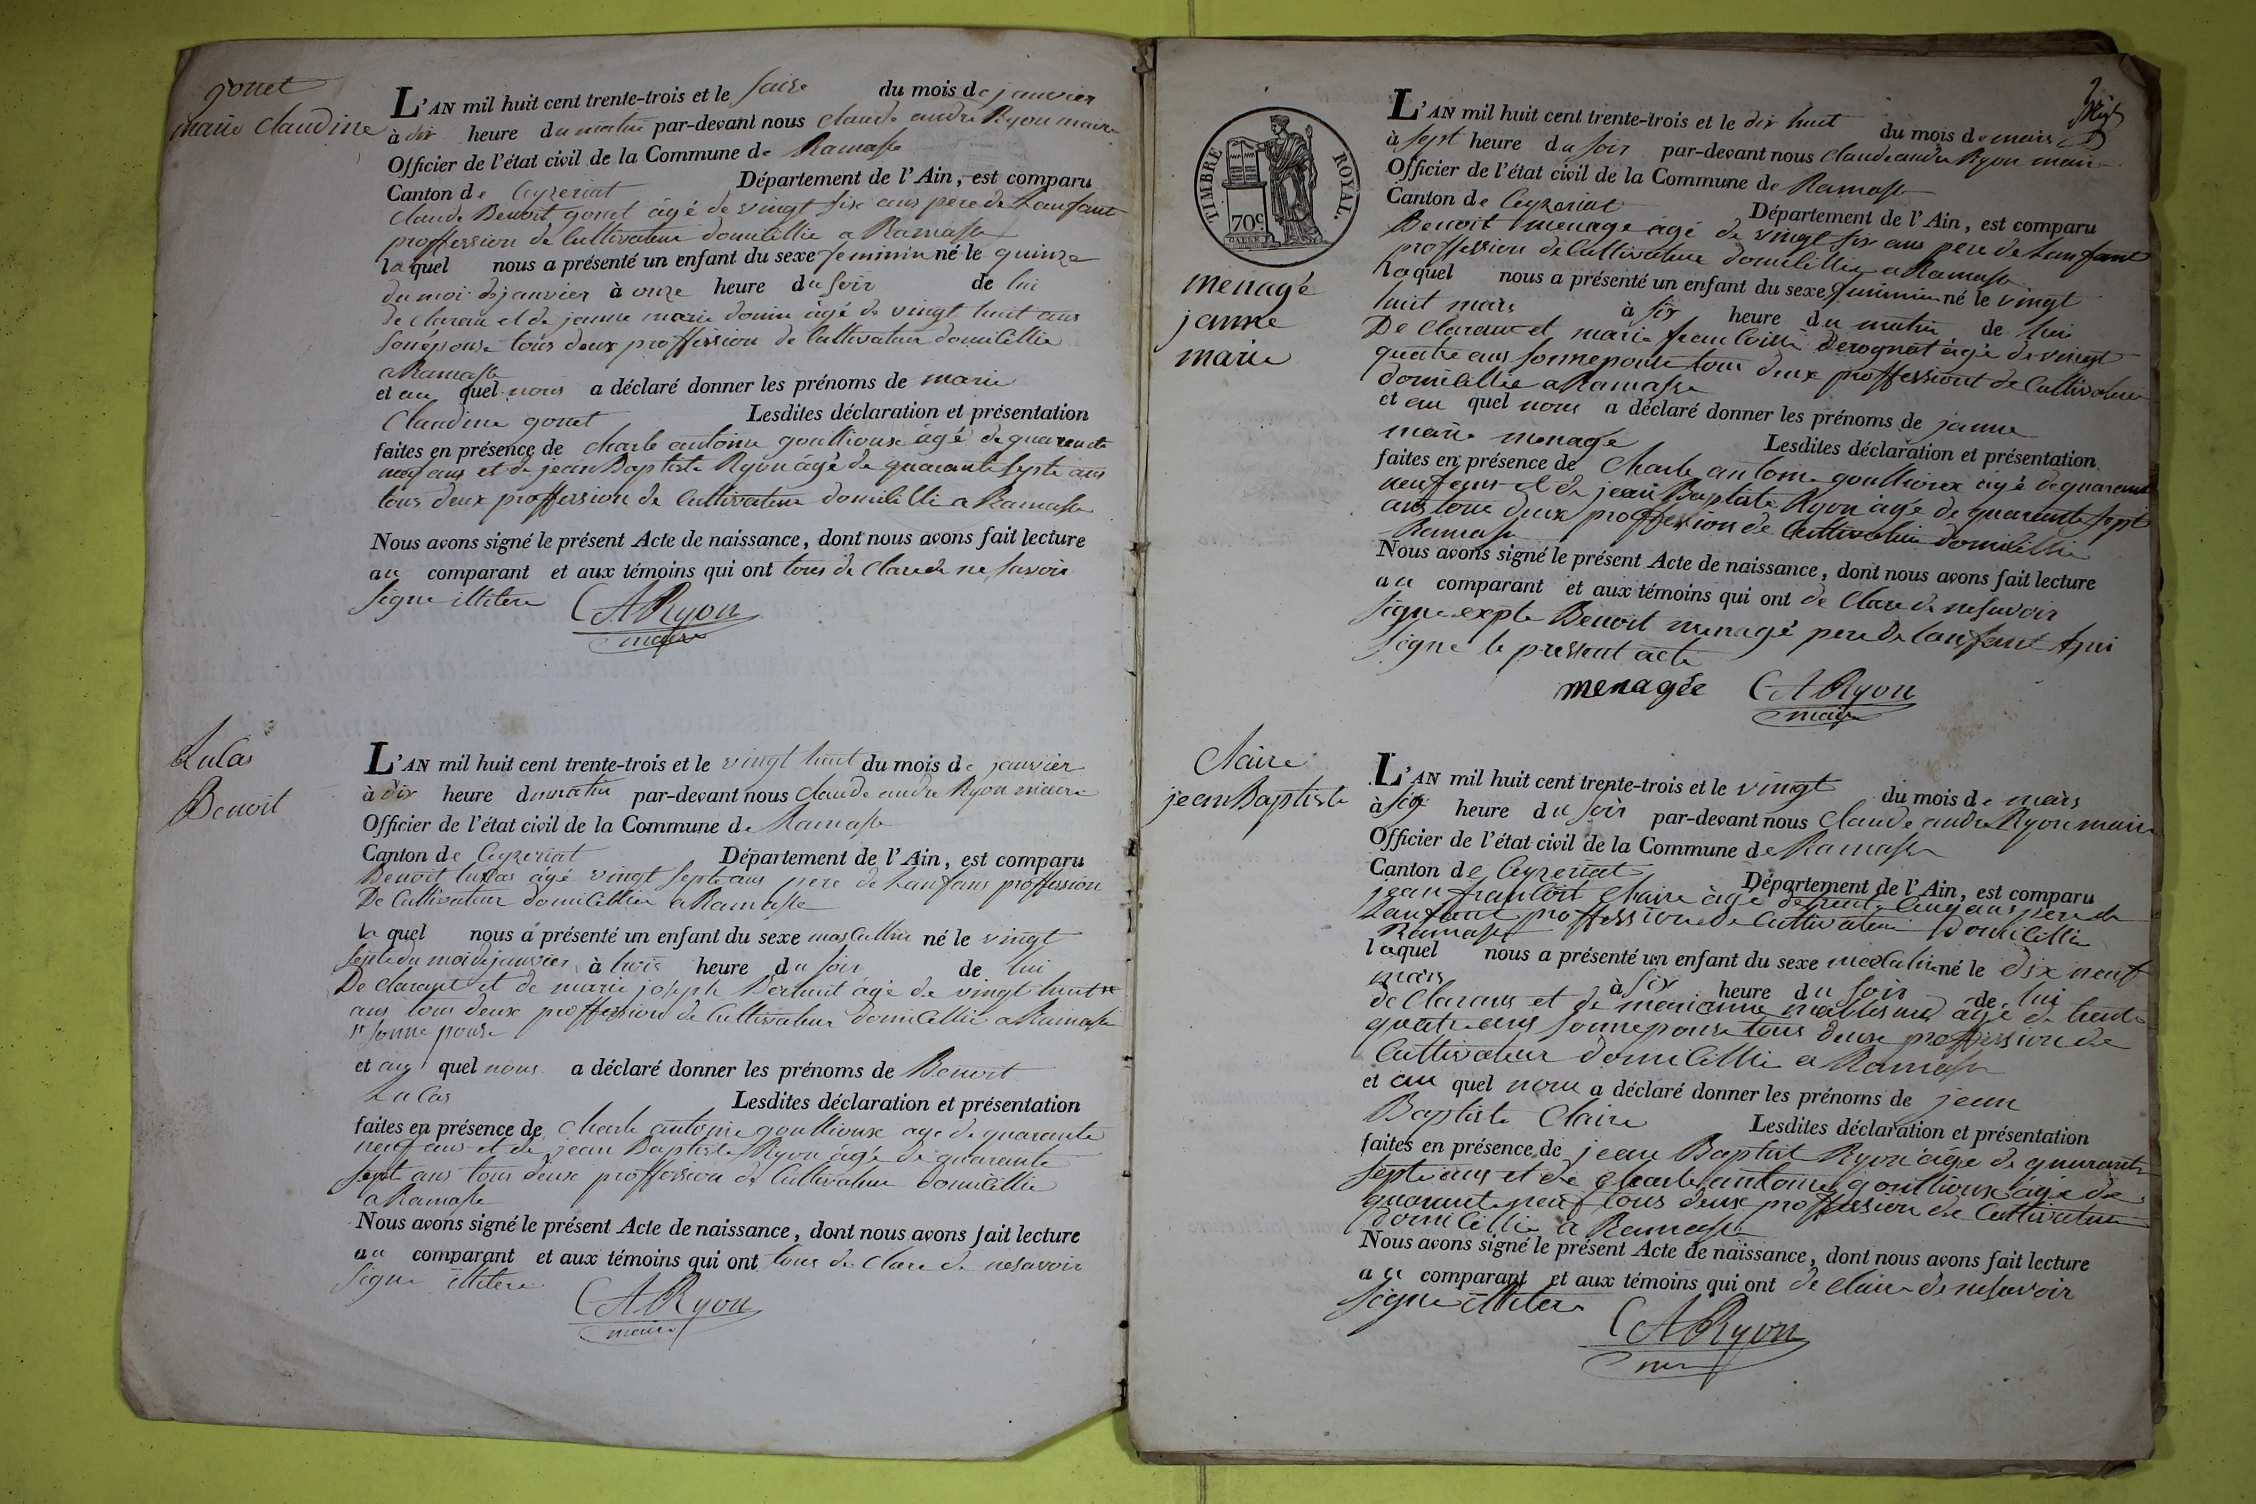 gonet
marie claudine
L'AN mil huit cent trente-trois et le saize du mois de janvier
à dix heure du matin par-devant nous claude andre Ryon maire
Officier de l'état civil de la Commune de Ramasse
Canton de Ceyzeriat Département de l'Ain, est comparu
Claude Benoit gonet âgé de vingt six ans pere de Lanfant
proffession de Cultivateur domicillie a Ramasse
laquel nous a présenté un enfant du sexe feminin né le quinze
du moi de janvier à onze heure du soir de lui
de claran et de janne marie âgé de vingt huit ans
sonepouse tous deux proffession de Cultivateur domicillie
a Ramasse
et au quel nous a déclaré donner les prénoms de marie
Claudine gonet Lesdites déclaration et présentation
faites en présence de charle antoine goullioux âgé de quarente
neuf ans et de jean Baptiste Ryon âgé de quarante septe ans
tous deux proffession de Cultivateur domicillie a Ramasse
Nous avons signé le présent Acte de naissance, dont nous avons fait lecture
au comparant et aux témoins qui ont tous de clare de ne savoir
signe illitere
CA Ryon
maire
Lucas
Benoit
L'AN mil huit cent trente-trois et le vingt huit du mois de janvier
à dix heure du matin par-devant nous claude andre Ryon maire
Officier de l'état civil de la Commune de Ramasse
Canton de Ceyzeriat Département de l'Ain, est comparu
Benoit lucas âgé vingt septe ans pere de Lanfans proffession
De Cultivateur domicillie a Ramasse
laquel nous a présenté un enfant du sexe masculin né le vingt
septe du moi de janvier à trois heure du soir de lui
De clarant et de marie joseph âgé de vingt huit
ans tous deux proffession de Cultivateur domicillie a Ramasse
sonne pouse
et au quel nous a déclaré donner les prénoms de Benoit
Lucas Lesdites déclaration et présentation
faites en présence de charle antoine goullioux age de quarante
neuf ans et de jean Baptiste Ryon âgé de quarente
sept ans tous deux proffession de Cultivateur domicillie
a Ramasse
Nous avons signé le présent Acte de naissance, dont nous avons fait lecture
au comparant et aux témoins qui ont tous de clare de nesavoir
signe illitere
CA Ryon
maire
2
TIMBRE ROYAL.
70c.
menagé
janne
marie
L'AN mil huit cent trente-trois et le dix huit du mois de mars
à sept heure du soir par-devant nous claude andre Ryon maire
Officier de l'état civil de la Commune de Ramasse
Canton de Ceyzeriat Département de l'Ain, est comparu
Benoit menage âgé de vingt six ans pere de Lanfant
proffession de Cultivateur domicillie a Ramasse
laquel nous a présenté un enfant du sexe feminin né le vingt
huit mars à six heure du matin de lui
De clarant et marie francoise âgé de vingt
quatre ans sonnepouse tous deux proffessiont de Cultivateur
domicillie a Ramasse
et au quel nous a déclaré donner les prénoms de janne
marie menagé Lesdites déclaration et présentation
faites en présence de charle antoine goullioux âgé de quarante
neuf ans et de jean Baptiste Ryon âgé de quarente sept
ans tous deux proffession de Cultivateur domicillie
Ramasse
Nous avons signé le présent Acte de naissance, dont nous avons fait lecture
au comparant et aux témoins qui ont de clare de nesavoir
signe expte Benoit menagé pere de lanfant qui
signe le present acte
menagée CA Ryon
maire
Claire
jean Baptiste
L'AN mil huit cent trente-trois et le vingt du mois de mars
à six heure du soir par-devant nous claude andre Ryon maire
Officier de l'état civil de la Commune de Ramasse
Canton de Ceyzeriat Département de l'Ain, est comparu
jean francois Claire âgé de trente cinq ans pere de
Lanfant proffession de Cultivateur domicillie
Ramasse
laquel nous a présenté un enfant du sexe masculin né le dix neuf
mars à six heure du soir de lui
de clarans et de marianne âgé de trente
quatre ans sonnepouse tous deux proffession de
Cultivateur domicillie a Ramasse
et au quel nous a déclaré donner les prénoms de jean
Baptiste Claire Lesdites déclaration et présentation
faites en présence de jean Baptist Ryon âgé de quarante
septe ans et de charle antoine goullioux âgé de
quarante neuf tous deux proffession de Cultivateur
domicillie a Ramasse
Nous avons signé le présent Acte de naissance, dont nous avons fait lecture
au comparant et aux témoins qui ont de claire de nesavoir
signe illitere
CA Ryon